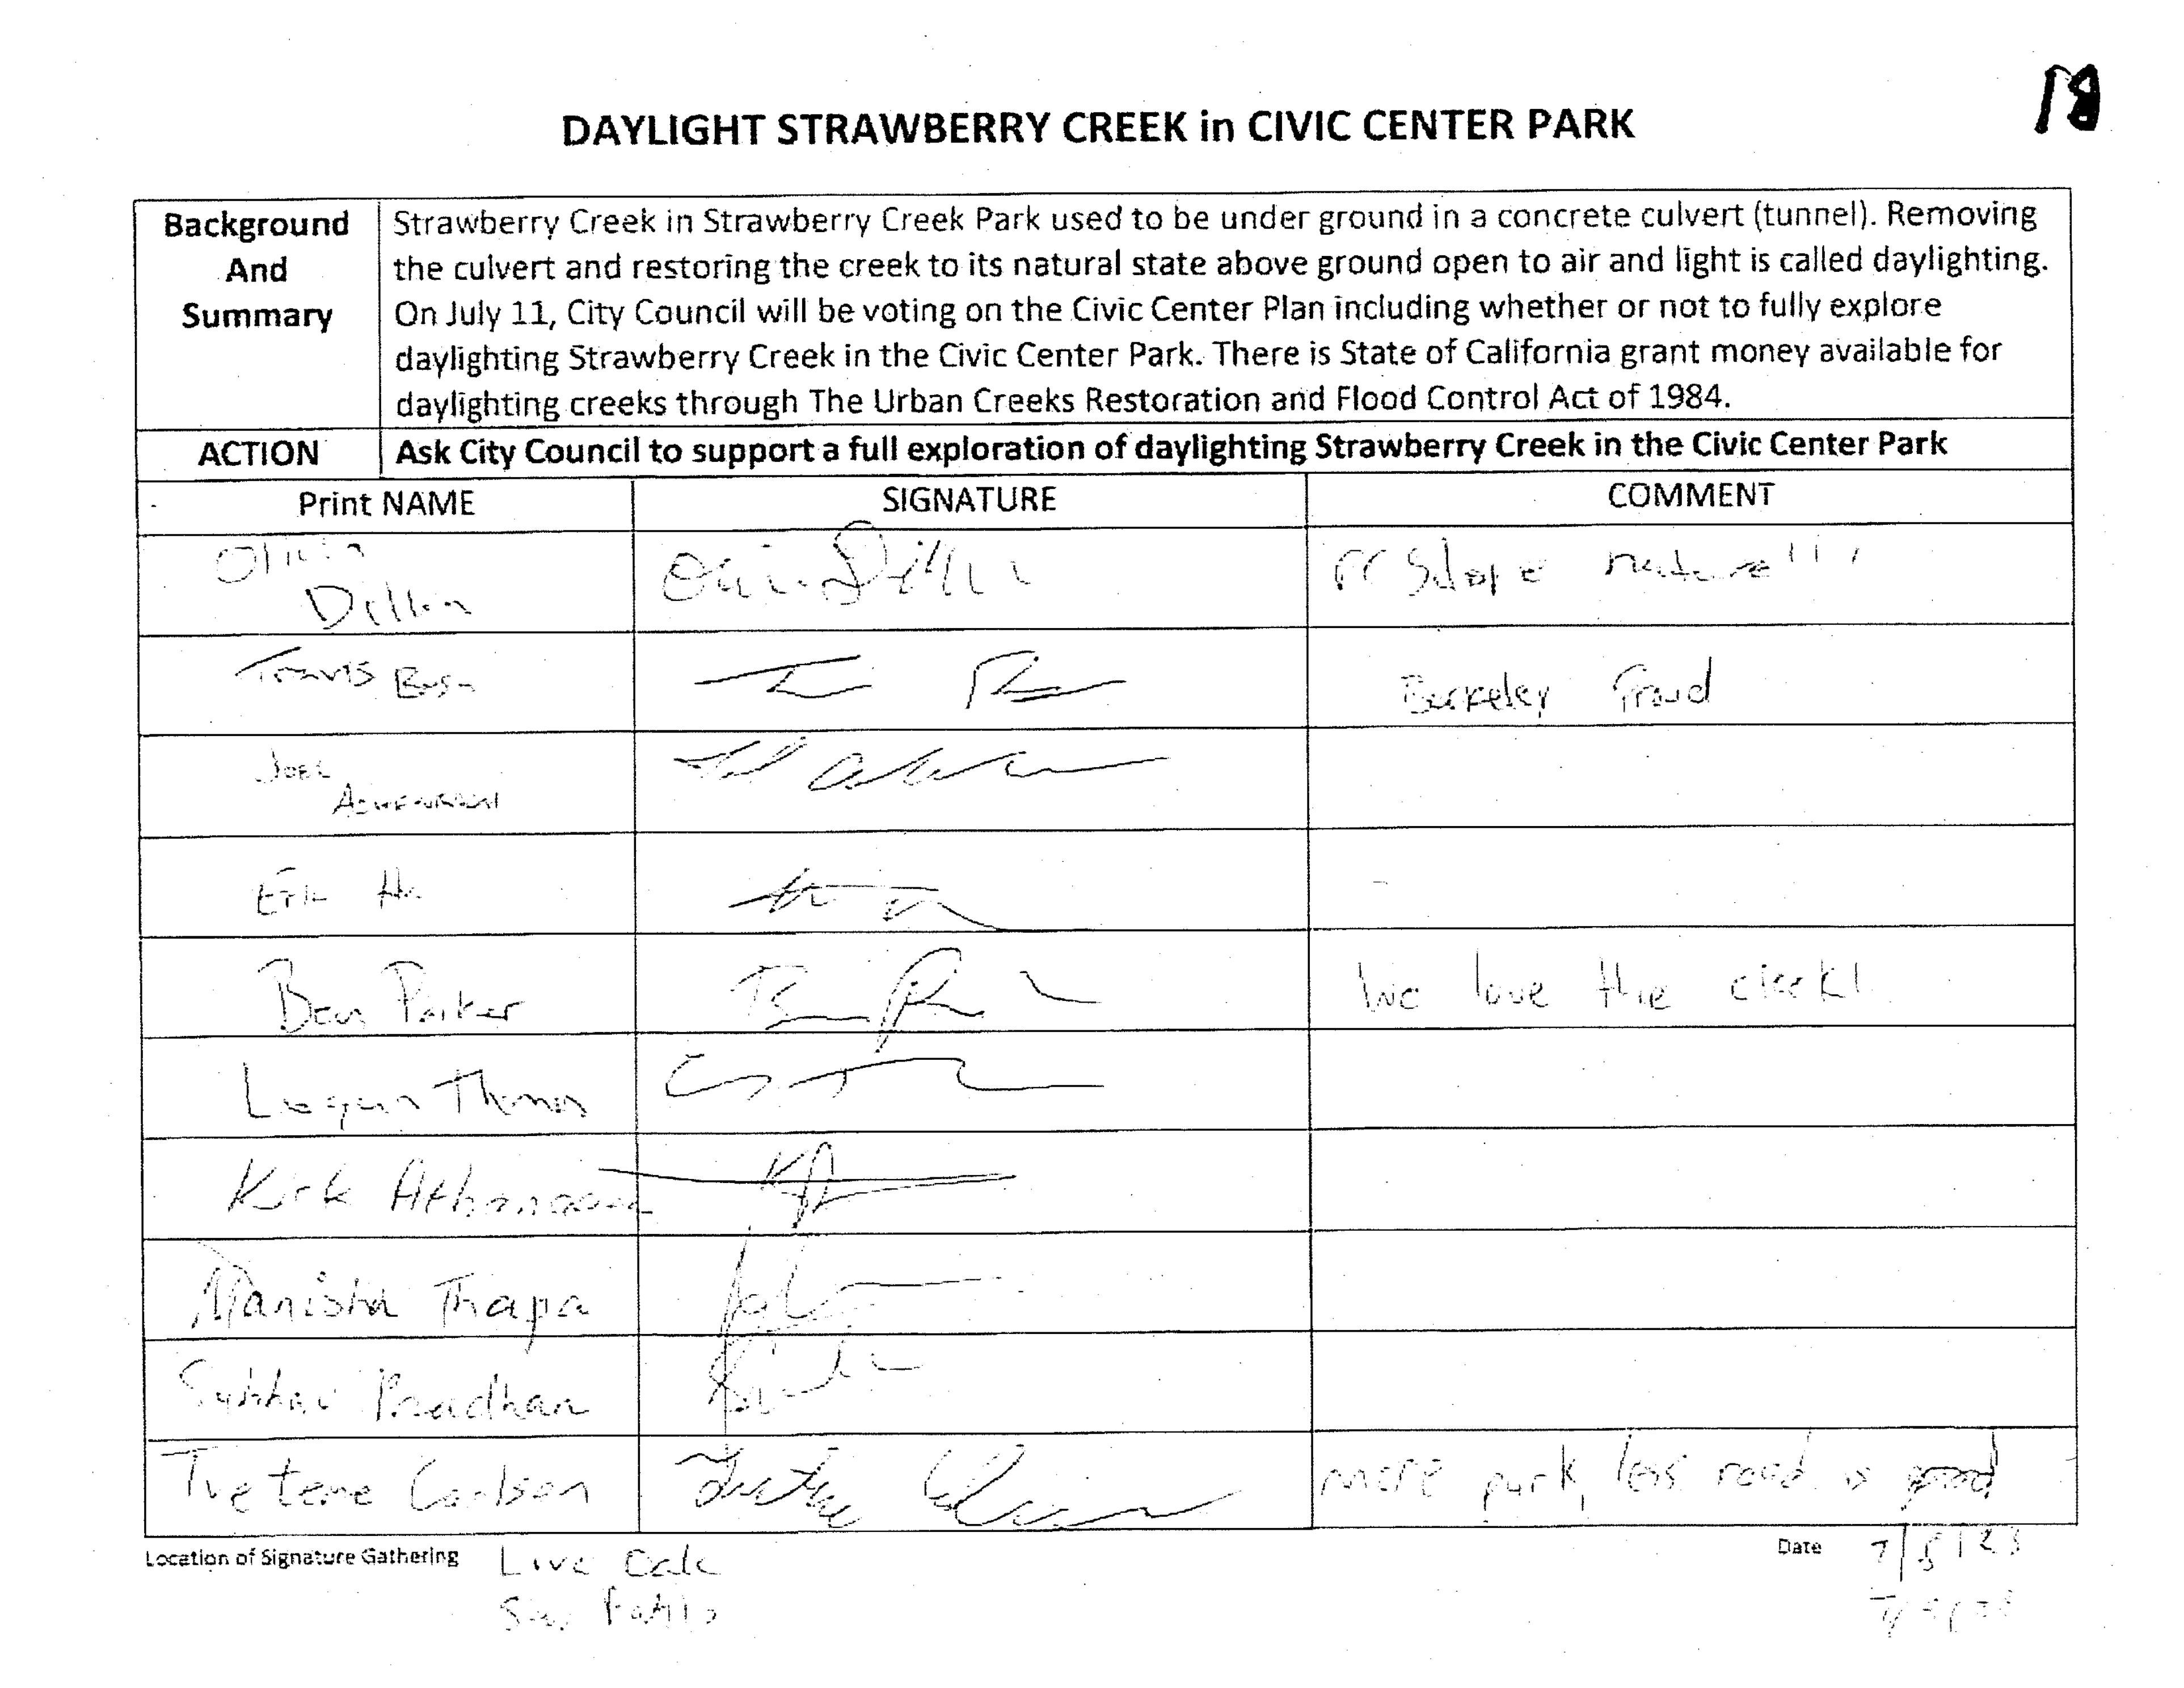 18
DAYLIGHT STRAWBERRY CREEK in CIVIC CENTER PARK
Background And Summary
Strawberry Creek in Strawberry Creek Park used to be under ground in a concrete culvert (tunnel). Removing
the culvert and restoring the creek to its natural state above ground open to air and light is called daylighting.
On July 11, City Council will be voting on the Civic Center Plan including whether or not to fully explore
daylighting Strawberry Creek in the Civic Center Park. There is State of California grant money available for
daylighting creeks through The Urban Creeks Restoration and Flood Control Act of 1984.
ACTION Ask City Council to support a full exploration of daylighting Strawberry Creek in the Civic Center Park
Print NAME SIGNATURE COMMENT
Olivia
Dillon
nature!!!!
Travis Berkeley Proud
JOEL
Erik
Ben Parker We love the creek!
Thomas
Kirk
Manisha Thapa
Pradhan
Carlson more park, less road is good
Location of Signature Gathering Live Oak Date 7/8/23
San Pablo